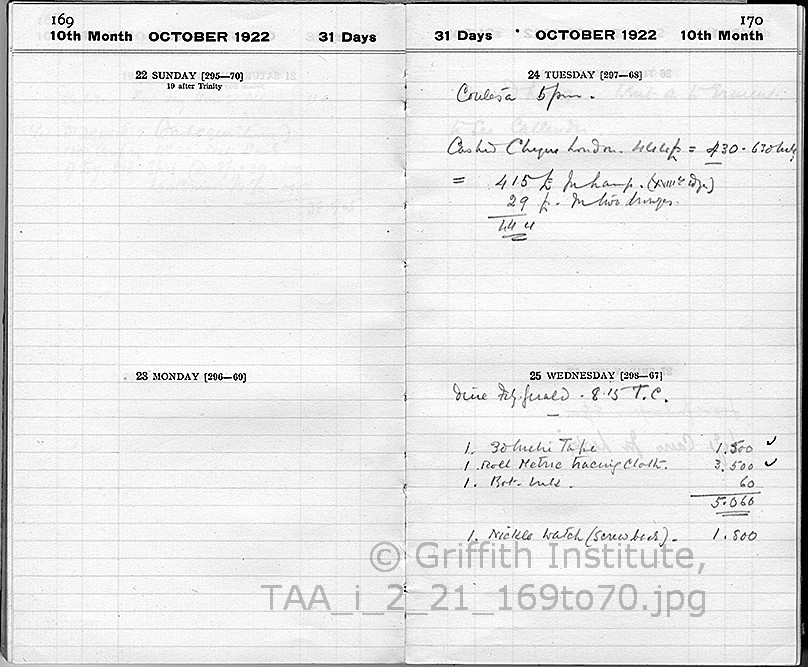 169
10th Month OCTOBER 1922 31 Days
22 SUNDAY [295—70]
19 after Trinity
23 MONDAY [296—69]
170
31 Days OCTOBER 1922 10th Month
24 TUESDAY [297—68]
5pm.
Cashed Cheque London. = 430 -
= 415 £ In
29 p. In two
444
25 WEDNESDAY [298—67]
Dine Fitzgerald - 8.15 T.C.
1. 30 Metre Tape 1.500 ✓
1. Roll Metric tracing Cloth. 3.500 ✓
1. Bot. Ink. 60
5.060
1. Nickle Watch (screw back). 1.800
© Griffith Institute,
TAA_i_2_21_169to70.jpg